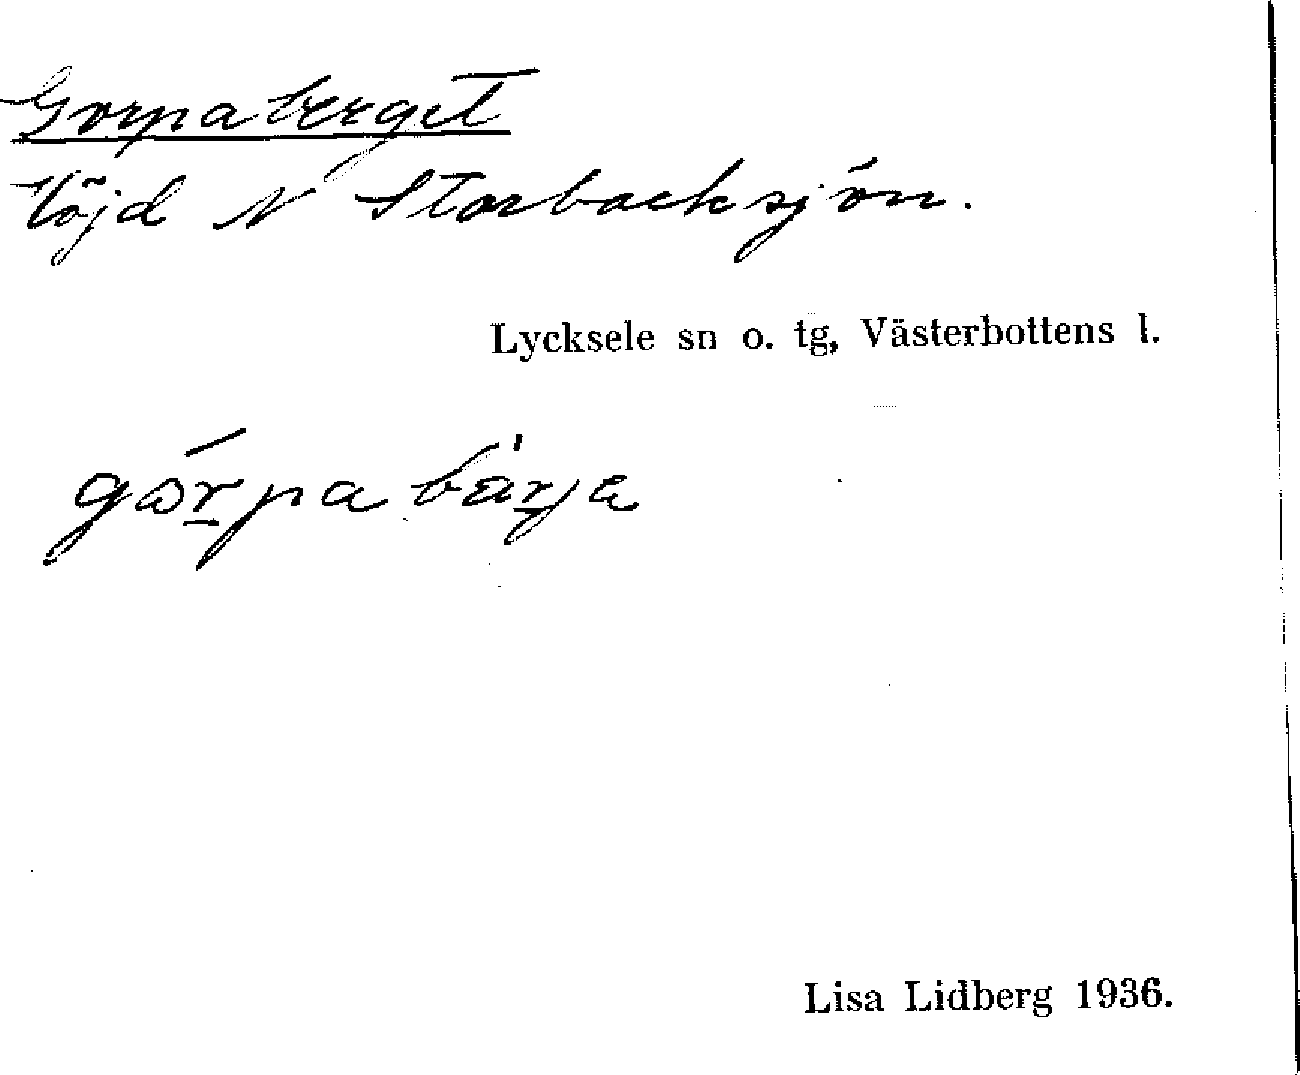 Gorpaberget
Höjd N Storbacksjön.
Lycksele sn o. tg, Västerbottens l.
gɷ́r̲pa bä̀r̲ja
Lisa Lidberg 1936.